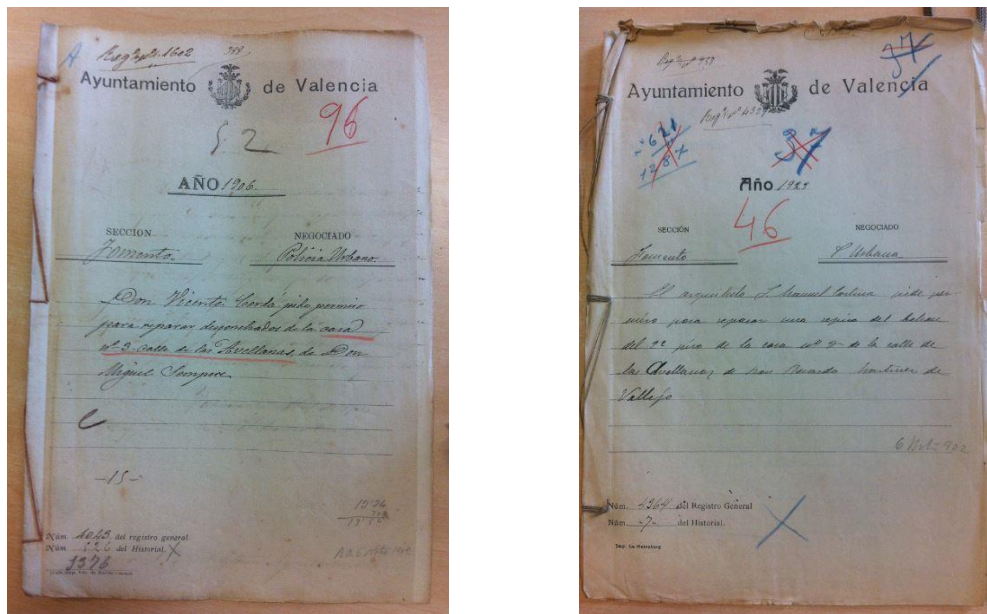 A
Regtro nº 1602
Ayuntamiento de Valencia
96
AÑO 1906.
SECCIÓN NEGOCIADO
Fomento. Policia Urbana.
Don Vicente Cerdá pide permiso
para reparar desconchados de la casa
nº 3 calle de las Avellanas, de Don
Miguel Sempere
-15-
Núm. 1023 del registro general
Núm. 126 del Historial.
1376
37
Ayuntamiento de Valencia
621
128
37
Año
46
SECCIÓN NEGOCIADO
Fomento P Urbana
El arquitecto D Manuel Cortina pide per
miso para reparar una repisa del balcon
del 2º piso de la casa nº de la calle de
las Avellanas de Don Ricardo Martinez de
Vallejo
Núm. 4364 del Registro General
Núm. -7- del Historial.